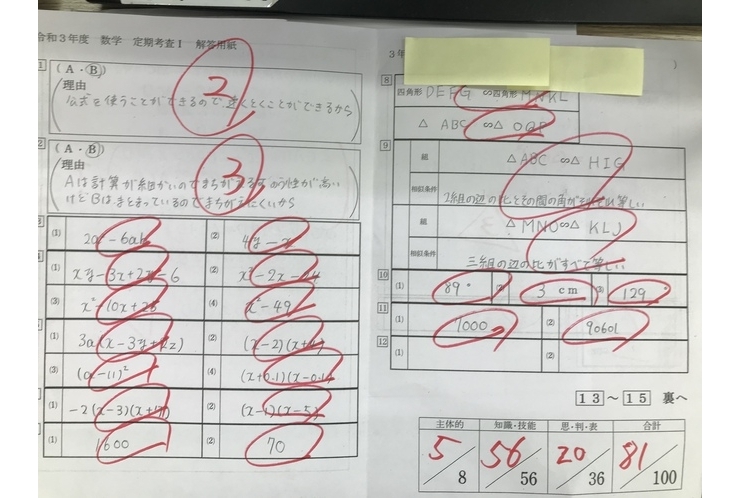 令和３年度 数学 定期考査Ⅰ 解答用紙
1 （A・B）
理由
公式を使うことができるので速くとくことができるから
2
2 （A・B）
理由
Aは計算が細かいのでまちがえるかのう性が高い
けどBはまとまっているのでまちがえにくいから
3
(1) 2a² - 6ab (2) 4y - x
(1) xy - 3x + 2y - 6 (2) x² - 2x - 24
(3) x² - 10x + 25 (4) x² - 49
(1) 3a(x - 3y + 2z) (2) (x - 2)(x + 4)
(3) (a - 11)² (4) (x + 0.1)(x - 0.1)
(1) -2(x - 3)(x + 7) (2) (x - 4)(x - 5)
(1) 1600 (2) 70
3年
8
四角形 DEFG ∽四角形 KL
△ ABC ∽△ OQP
9
組 △ABC ∽△ HIG
相似条件 2組の辺の比とその間の角がそれぞれ等しい
組 △MNO ∽△ KLJ
相似条件 三組の辺の比がすべて等しい
10 (1) 89° (2) 3 cm (3) 129°
11 (1) 1000 (2) 90601
12 (1) (2)
13～15 裏へ
主体的 知識・技能 思・判・表 合計
5/8 56/56 20/36 81/100